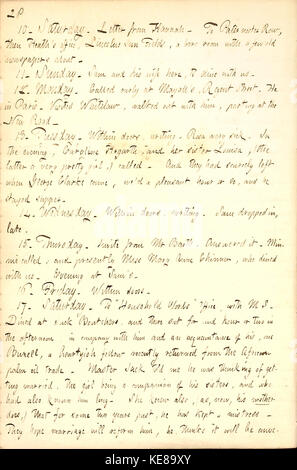 28
10. Saturday. Letter from Hannah. To Paternoster Row,
then Heath's office, Lincolns Inn Fields, a bare room with a few old
newspapers about.
11. Sunday. Sam and his wife here, to dine with us.
12. Monday. Called early at Mayall's, Regent Street. He
in Paris. Visited Whitelaw, walked out with him, parting at the
New Road.
13. Tuesday. Within doors, writing. Rosa very sick. In
the evening, Caroline Hogarth, and her sister Louisa, (the
latter a very pretty girl,) called. And they had scarcely left
when George Clarke came, we'd a pleasant hour or so, and he
stayed supper.
14. Wednesday. Within doors writing. Sam dropped in,
late.
15. Thursday. Invite from Mr Bott. Answered it. Min-
nie called, and presently Miss Mary Anne Skinner, who dined
with us. Evening at Sam's.
16. Friday. Within doors.
17. Saturday. To "Household Words" Office, with M.S.
Dined at and there out for an hour or two in
the afternoon in company with him and an acquaintance of his, one
Bunnell, a fellow recently returned from the African
palm oil trade. Master Jack told me he was thinking of get-
ting married, the girl being a companion of his sisters, and who
had also known him long. She knew also, as, now, his mother
does, that for some two years past, he has kept a mistress.
They hope marriage will reform him, he thinks it will be cause
alamy
Image ID: KE89XY
www.alamy.com